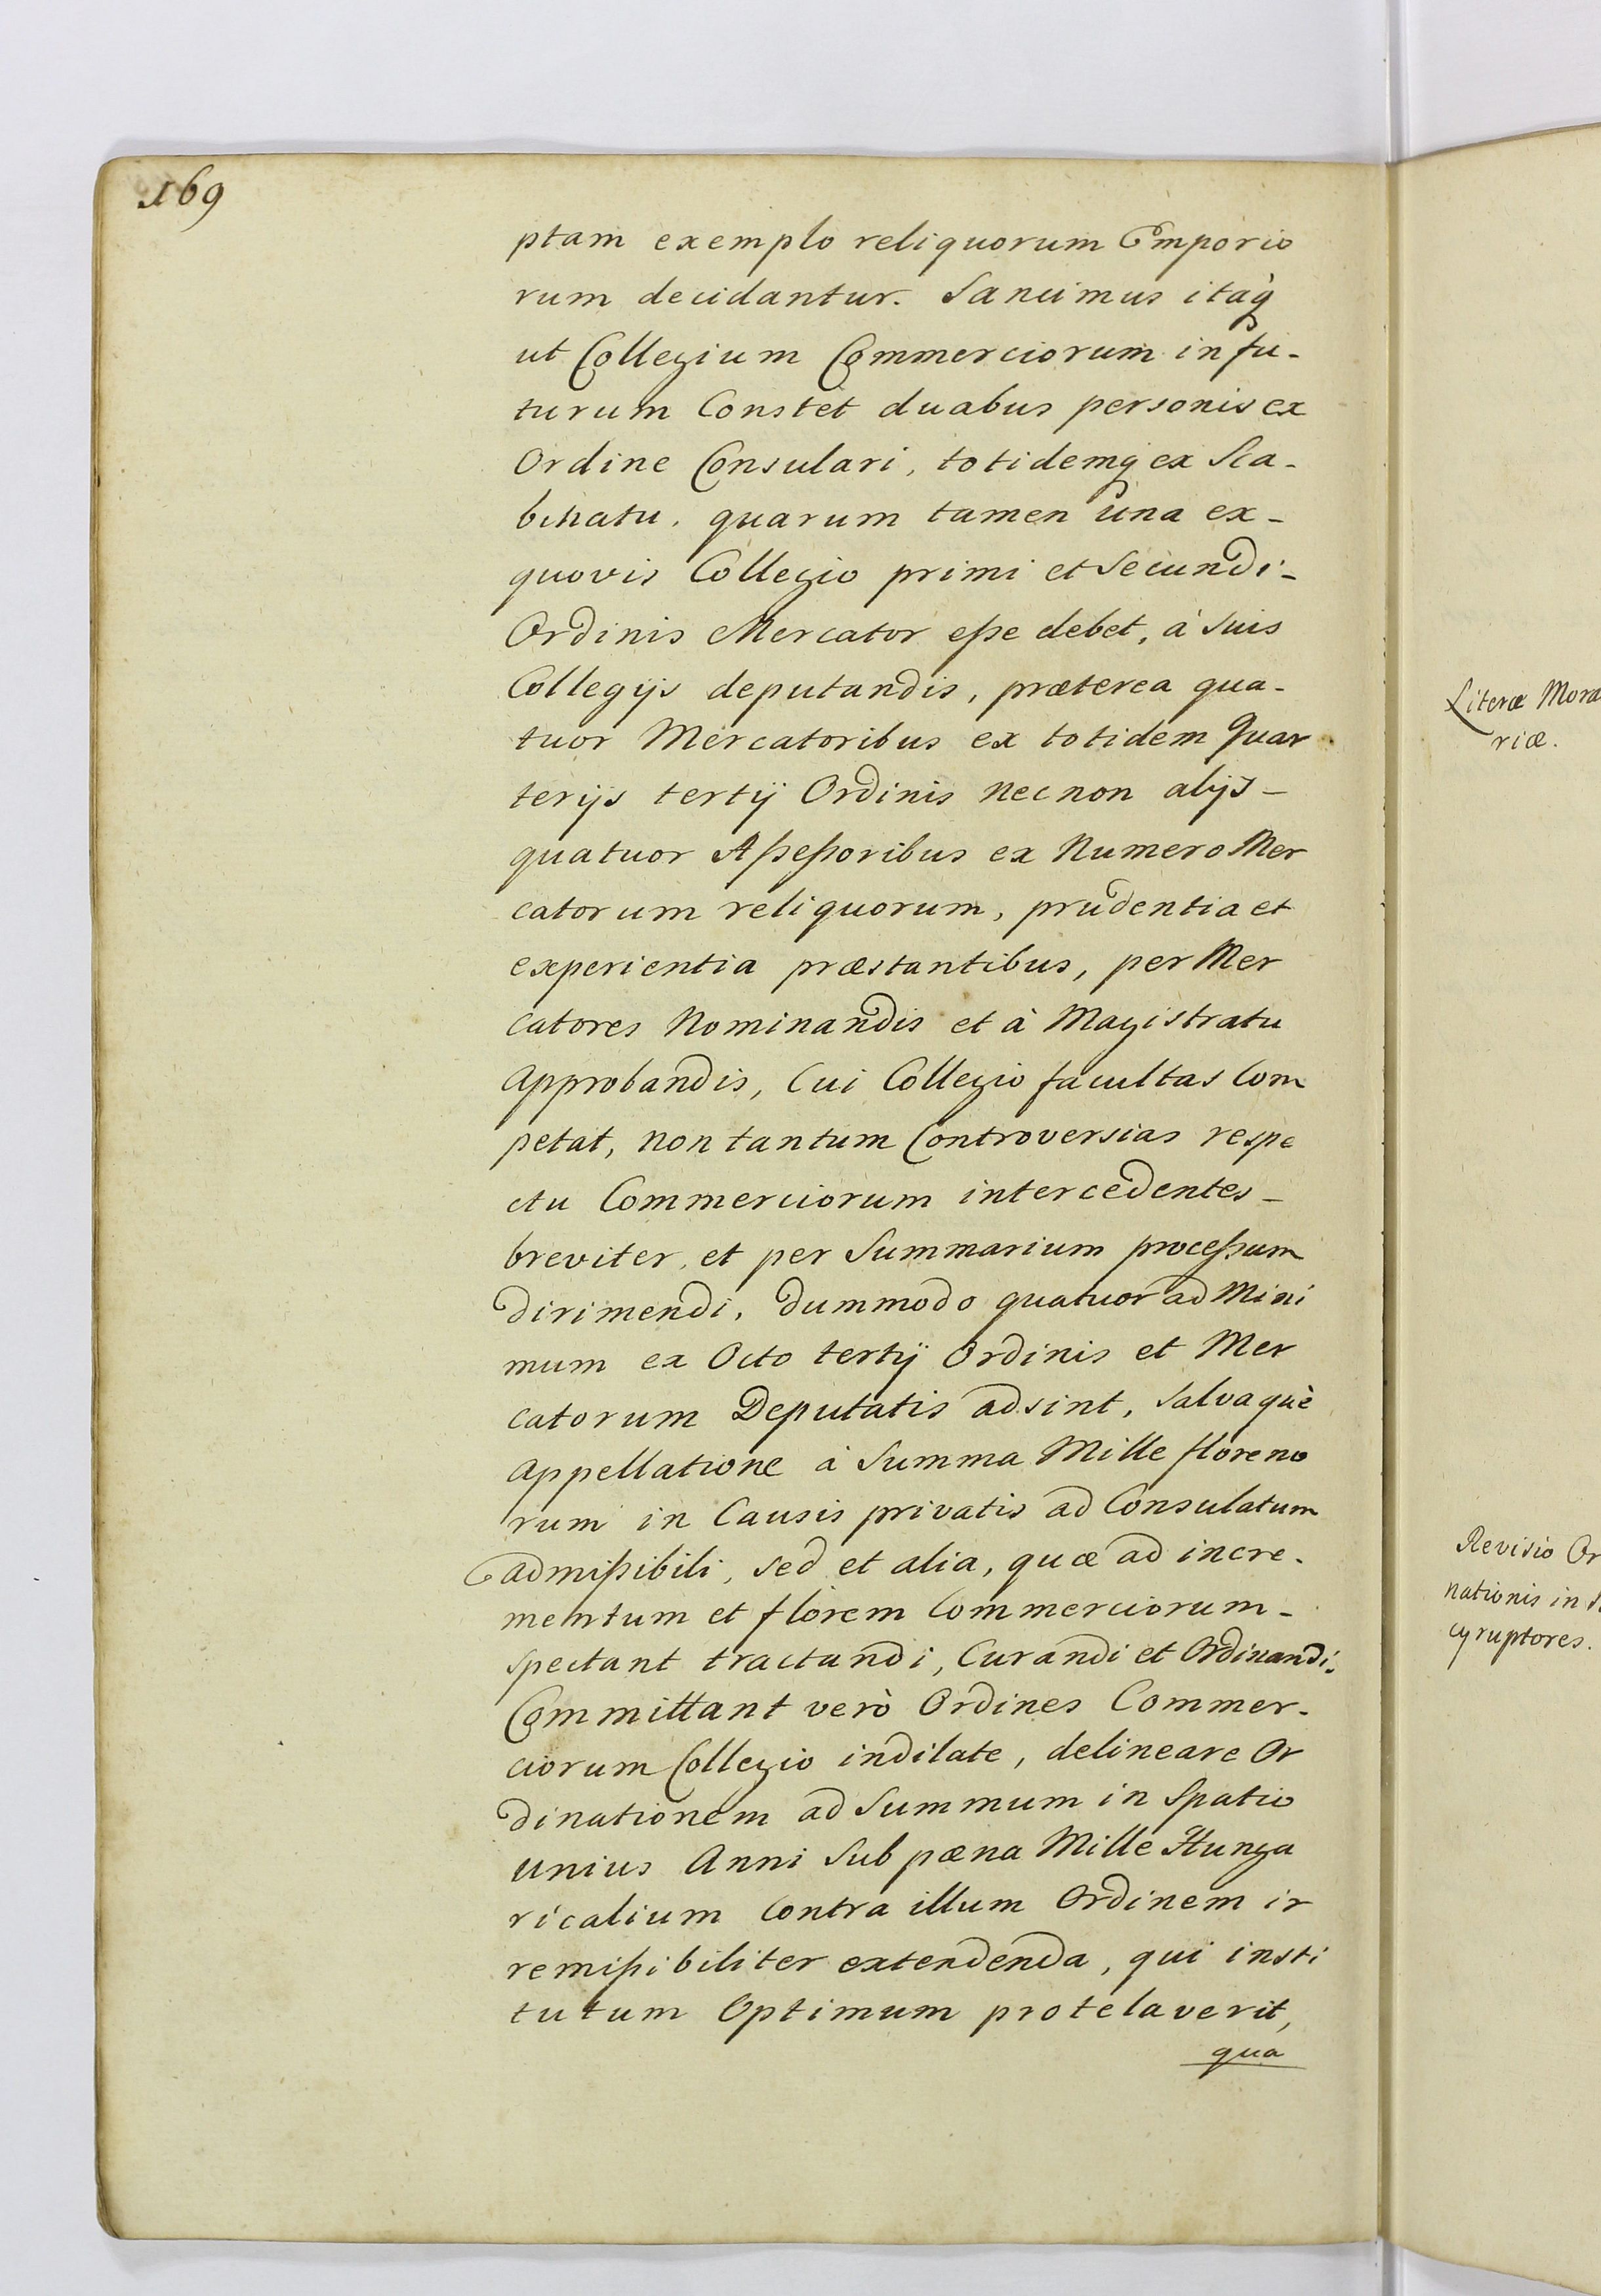 169
ptam exemplo reliquorum Emporio
rum decidantur. Sancimus itaq́
ut Collegium Commerciorum in fu-
turum Constet duabus personis ex
Ordine Consulari, totidemq́ ex Sca-
binatu. quarum tamen una ex-
quovis Collegio primi et Secundi-
Ordinis Mercator esse debet, à suis
Collegijs deputandis, præterea qua-
tuor Mercatoribus ex totidem Quar
terijs tertij Ordinis nec non alijs-
quatuor Assessoribus ex Numero Mer
catorum reliquorum, prudentia et
experientia præstantibus, per Mer
catores Nominandis et à Magistratu
Approbandis, Cui Collegio facultas Com
petat, non tantum Controversias respe
ctu Commerciorum intercedentes-
breviter, et per Summarium processum
dirimendi, dummodo quatuor ad Mini
mum ex Octo tertij Ordinis et Mer
catorum Deputatis adsint, salvaquè
Appellatione à Summa Mille floreno
rum in Causis privatis ad Consulatum
admissibili, sed et alia, quæ ad incre-
mentum et florem Commerciorum-
spectant tractandi, Curandi et Ordinandi.
Committant verò Ordines Commer-
ciorum Collegio indilate, delineare Or
dinationem ad Summum in Spatio
unius Anni Sub pæna Mille Hunga
ricalium contra illum Ordinem ir
remissibiliter extendenda, qui insti
tutum Optimum protelaverit,
qua
Literæ Mora
riæ.
Revisio Or
nationis in
cyruptores.